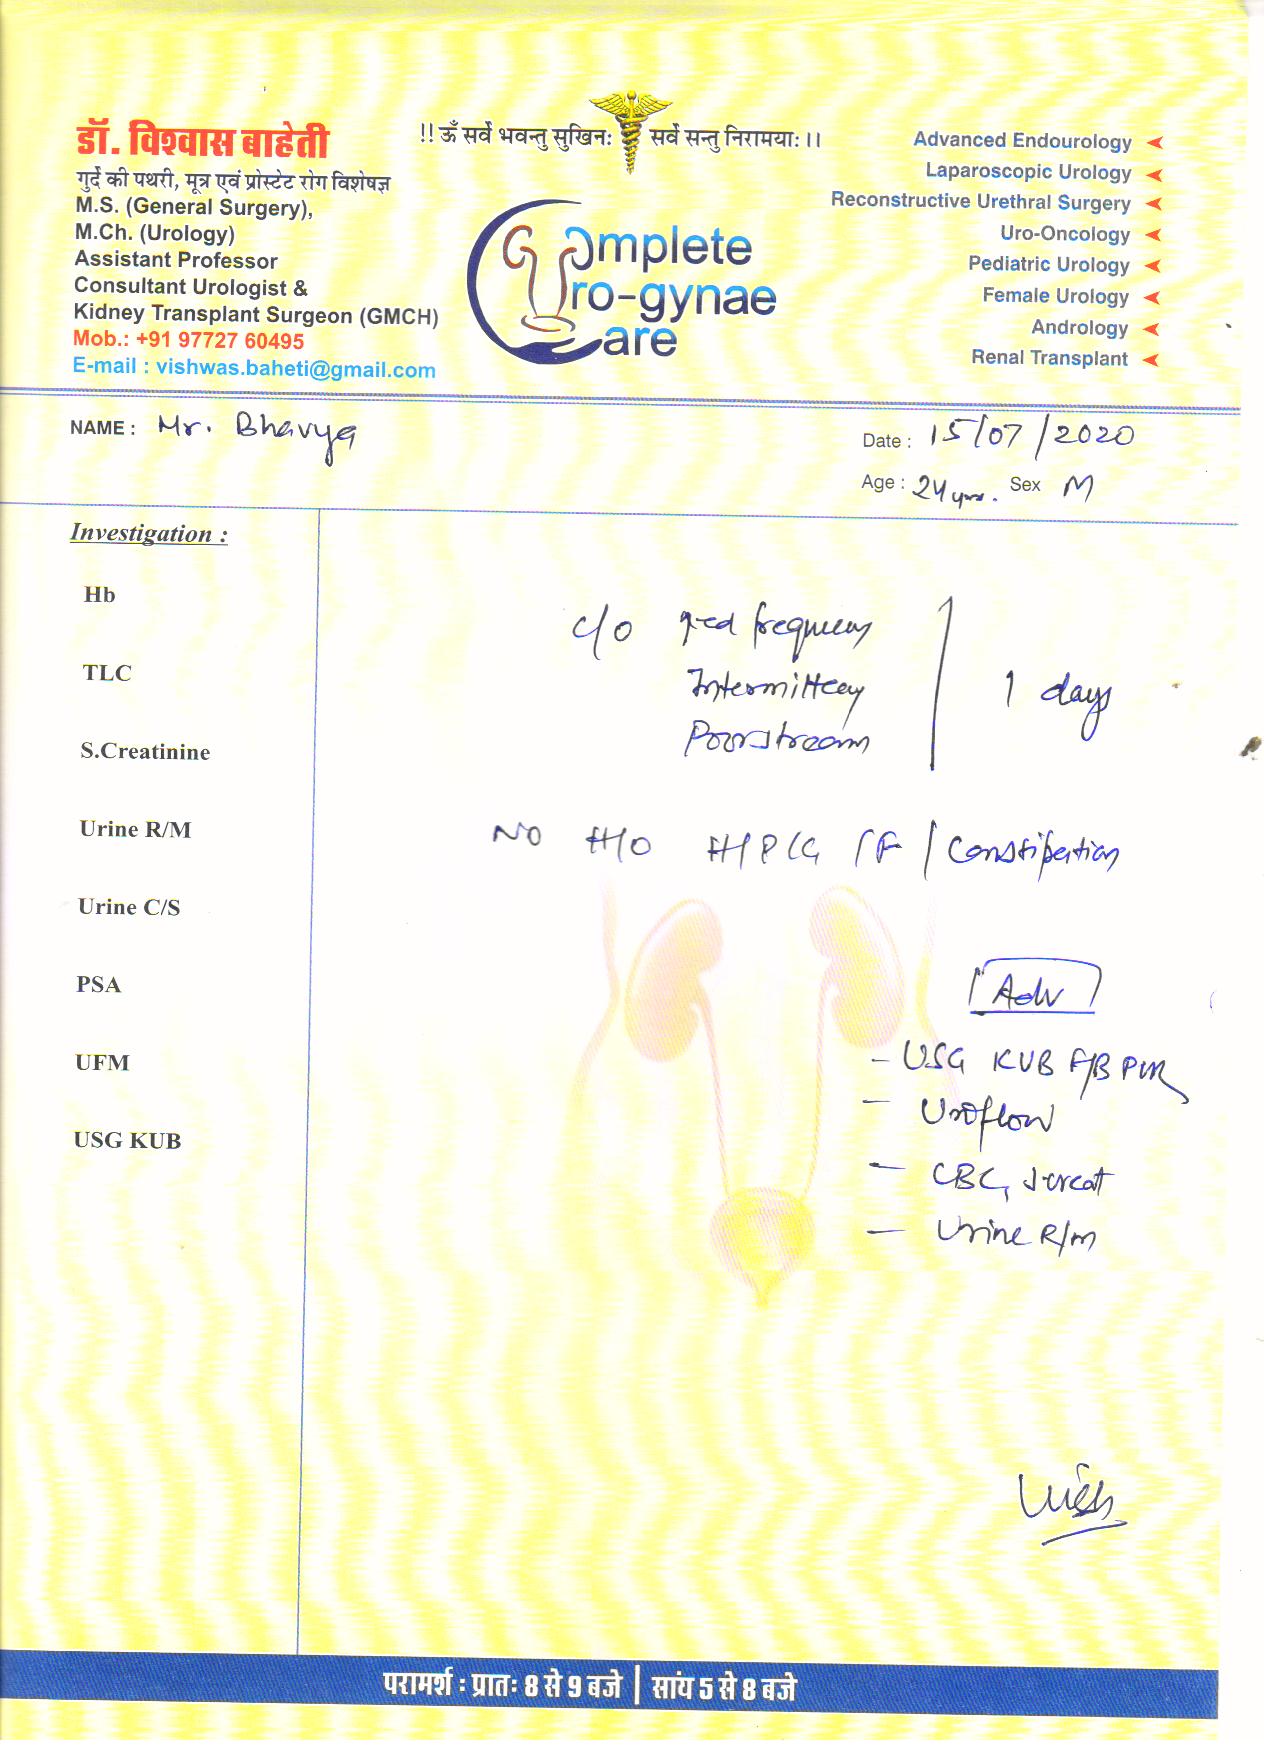 डॉ. विश्वास बाहेती
गुर्दे की पथरी, मूत्र एवं प्रोस्टेट रोग विशेषज्ञ
M.S. (General Surgery),
M.Ch. (Urology)
Assistant Professor
Consultant Urologist &
Kidney Transplant Surgeon (GMCH)
Mob.: +91 97727 60495
E-mail : vishwas.baheti@gmail.com
!! ॐ सर्वे भवन्तु सुखिनः सर्वे सन्तु निरामयाः ।।
Complete
Uro-gynae
Care
Advanced Endourology
Laparoscopic Urology
Reconstructive Urethral Surgery
Uro-Oncology
Pediatric Urology
Female Urology
Andrology
Renal Transplant
NAME : Mr. Bhavya
Date : 15/07/2020
Age : 24 yrs. Sex M
Investigation :
Hb
TLC
S.Creatinine
Urine R/M
Urine C/S
PSA
UFM
USG KUB
c/o frequency
Intermittency
Poor stream
1 days
NO H/O H/P/G/F/Constipation
Adv
- USG KUB F/B PVR
- Uroflow
- CBC, S-creat
- Urine R/m
Vish
परामर्श : प्रातः 8 से 9 बजे | सांय 5 से 8 बजे